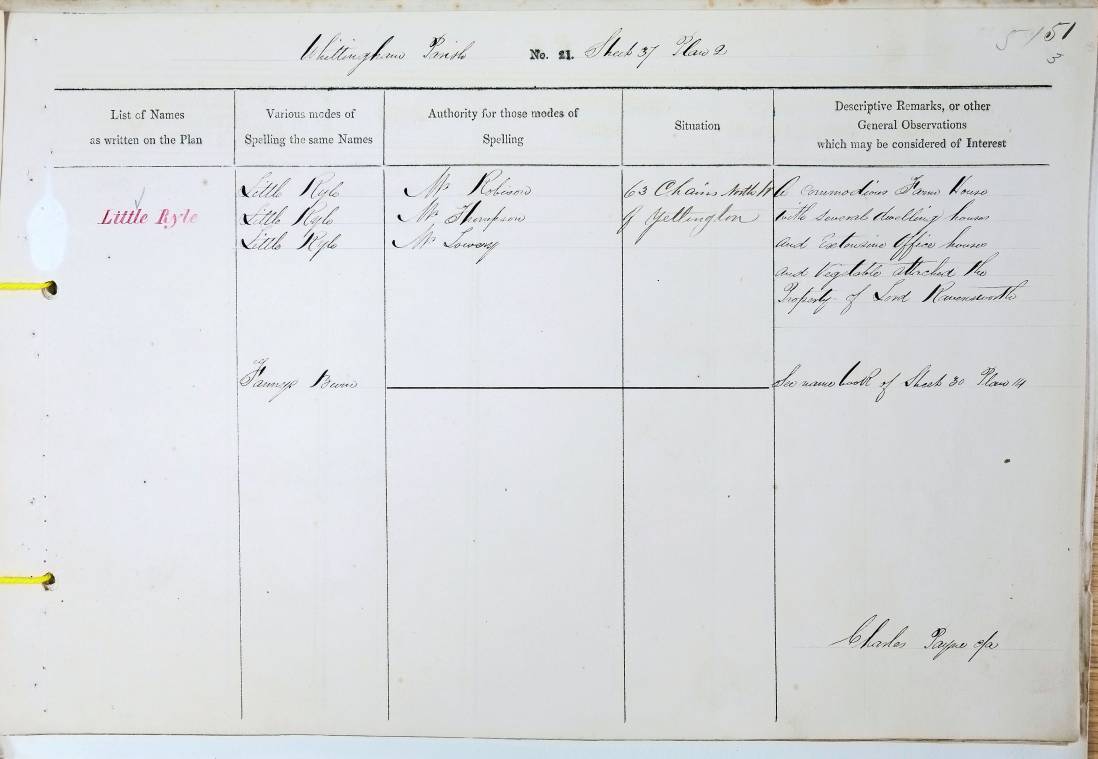 51
Whittingham Parish No. 21. Sheet 37 Plan 2
3
List of Names
as written on the Plan
Various modes of
Spelling the same Names
Authority for those modes of
Spelling
Situation
Descriptive Remarks, or other
General Observations
which may be considered of Interest
Little Ryle
Little Ryle
Little Ryle
Little Ryle
Mr Robinson
Mr Thompson
Mr Lowrey
63 Chains North W
of Yellington
A commodious Farm House
with several dwelling houses
and Extensive Office houses
and Vegetable attached the
Property of Lord Ravensworth
Fannys
See name book of Sheet 30 Plan 14
Charles Payne c/a